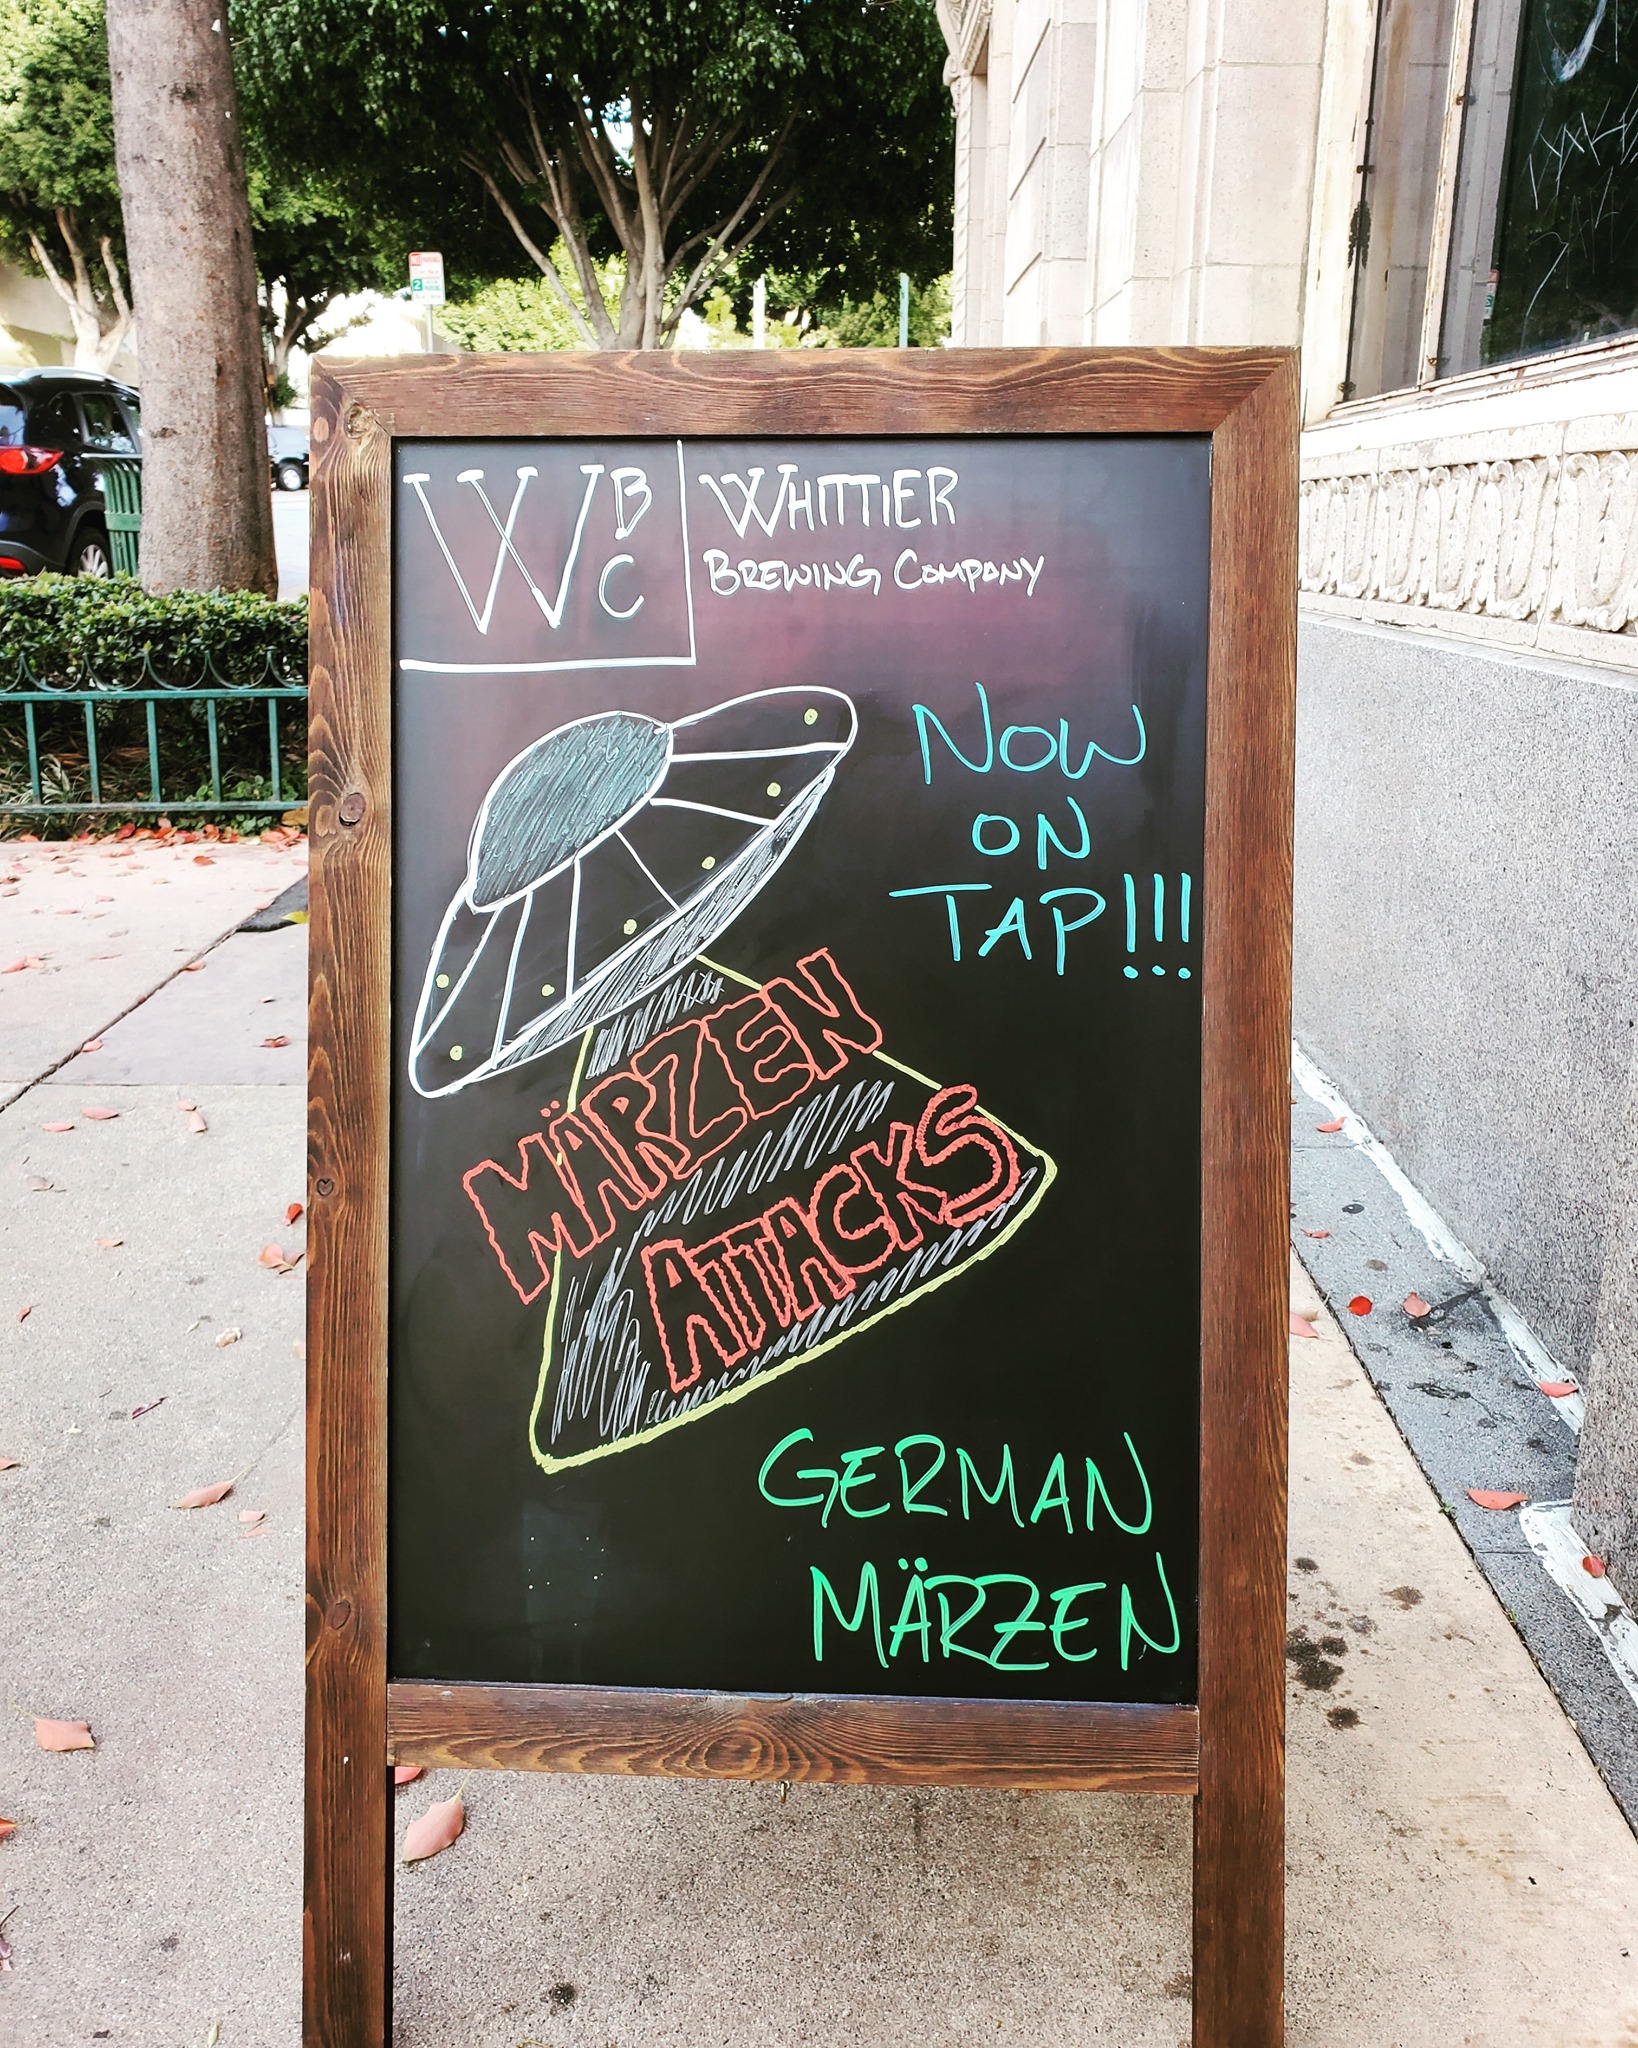 WBC
WHITTIER
BREWING COMPANY
NOW
ON
TAP!!!
MÄRZEN
ATTACKS
GERMAN
MÄRZEN